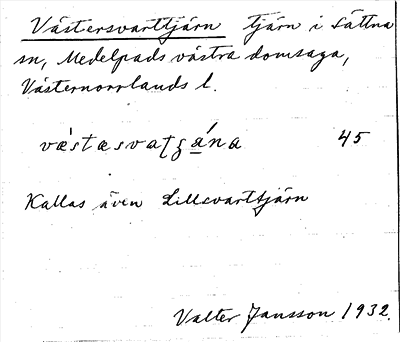 Västersvarttjärn tjärn i Sättna
sn, Medelpads västra domsaga,
Västernorrlands l.
45
Kallas även Lillsvarttjärn
Valter Jansson 1932.